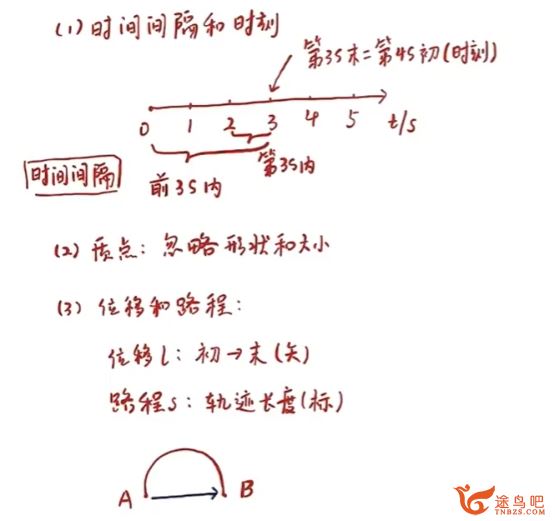 (1) 时间间隔和时刻
第3S末=第4S初(时刻)
0 1 2 3 4 5 t/s
时间间隔 前3S内 第3S内
(2) 质点: 忽略形状和大小
(3) 位移和路程:
位移l: 初→末(矢)
路程s: 轨迹长度(标)
A B
途鸟吧
TNBZS.COM